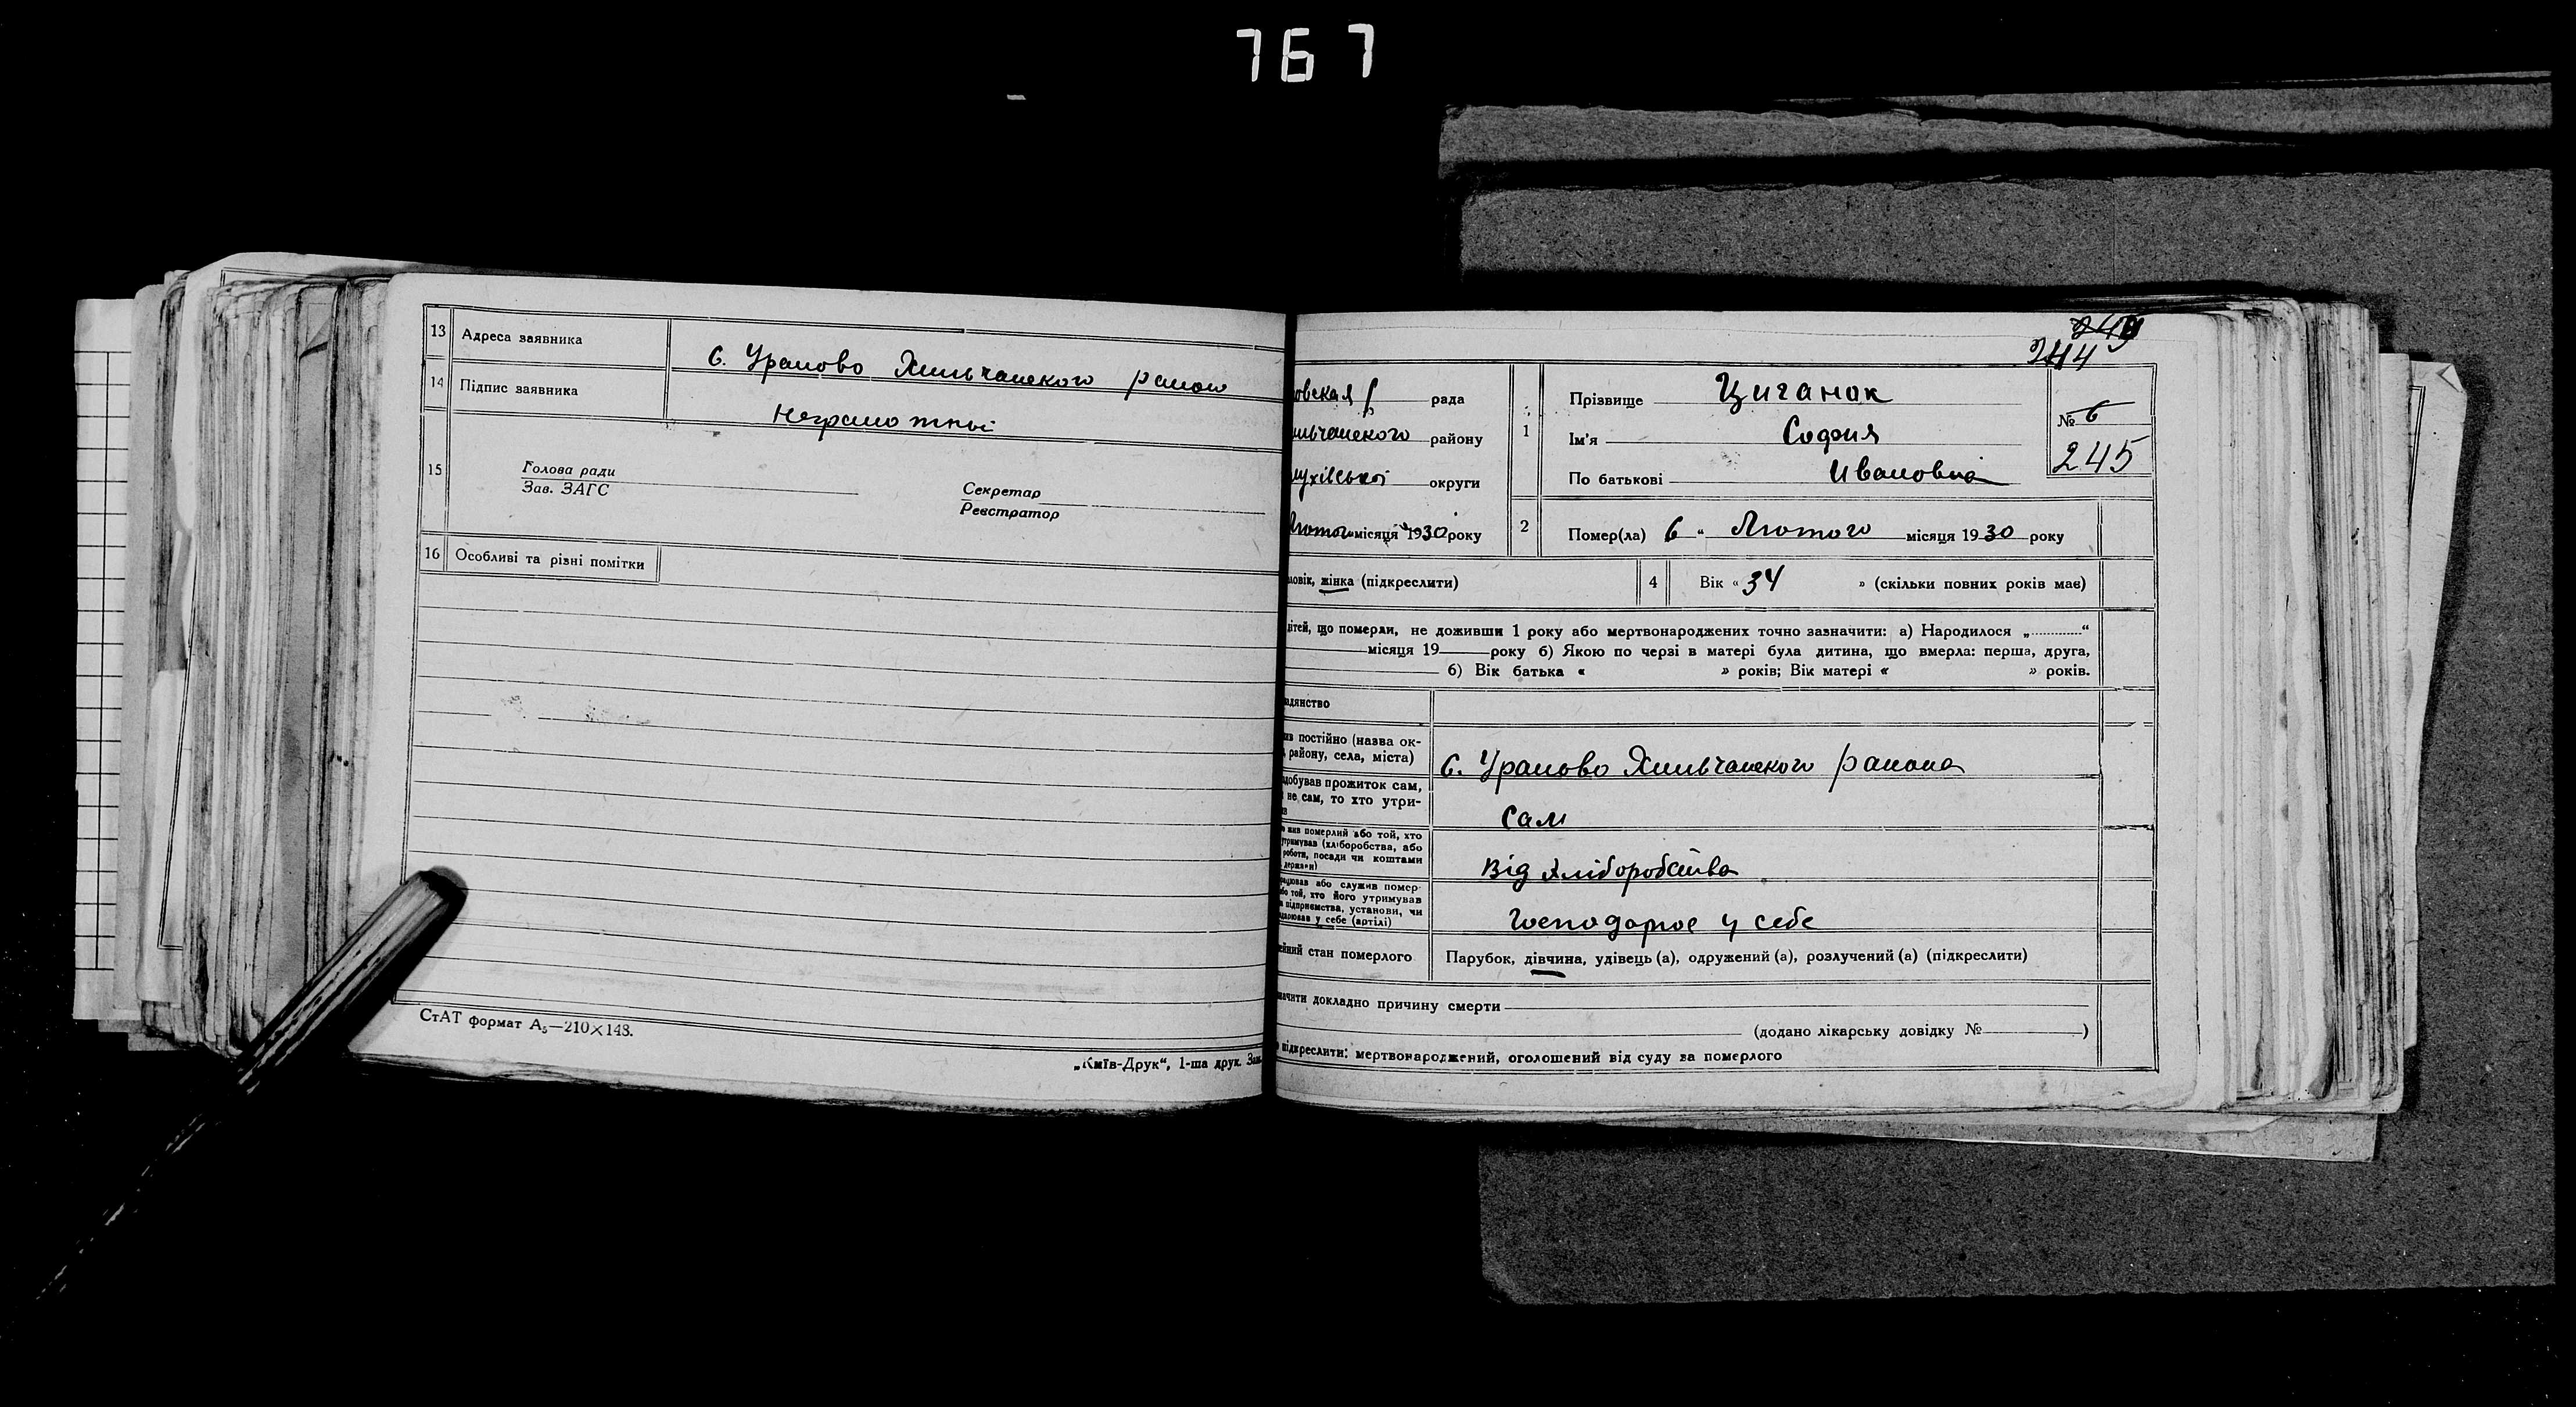 767
13 Адреса заявника
с. Ураново Хильчанского району
14 Підпис заявника
Неграмотный
15 Голова ради
Зав. ЗАГС
Секретар
Реєстратор
16 Особливі та різні помітки
СтАТ формат А₅—210×148.
„Київ-Друк“, 1-ша друк. Зам.
249
244
овская рада
ильчанского району
лухівської округи
Лютого місяця 1930 року
1 Прізвище Циганок
Ім'я София
По батькові Ивановна
№ 6
245
2 Помер(ла) 6 „ Лютого місяця 1930 року
ловік, жінка (підкреслити)
4 Вік « 34 » (скільки повних років має)
дітей, що померли, не доживши 1 року або мертвонароджених точно зазначити: а) Народилося „............“
місяця 19 року б) Якою по черзі в матері була дитина, що вмерла: перша, друга,
б) Вік батька « » років; Вік матері « » років.
адянство
ив постійно (назва ок-
, району, села, міста)
с. Ураново Хильчанского района
добував прожиток сам,
не сам, то хто утри-
в
сам
жив померлий або той, хто
утримував (хліборобства, або
роботи, посади чи коштами
держави)
Від хліборобства
рацював або служив помер-
бо той, хто його утримував
підприємства, установи, чи
одарював у себе (артілі)
Господарює у себе
ейний стан померлого
Парубок, дівчина, удівець (а), одружений (а), розлучений (а) (підкреслити)
значити докладно причину смерти
(додано лікарську довідку № )
підкреслити: мертвонароджений, оголошений від суду за померлого